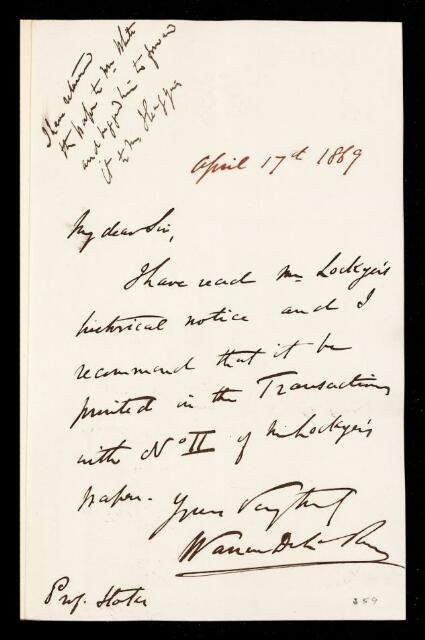 I have returned
the paper to Mr White
and begged him to forward
it to Mr Huggins
April 17th 1869
My dear Sir,
I have read Mr Lockyer's
historical notice and I
recommend that it be
printed in the Transactions
with No II of Mr Lockyer's
paper. Yours Very truly
Warren De la Rue
Prof. Stokes
359